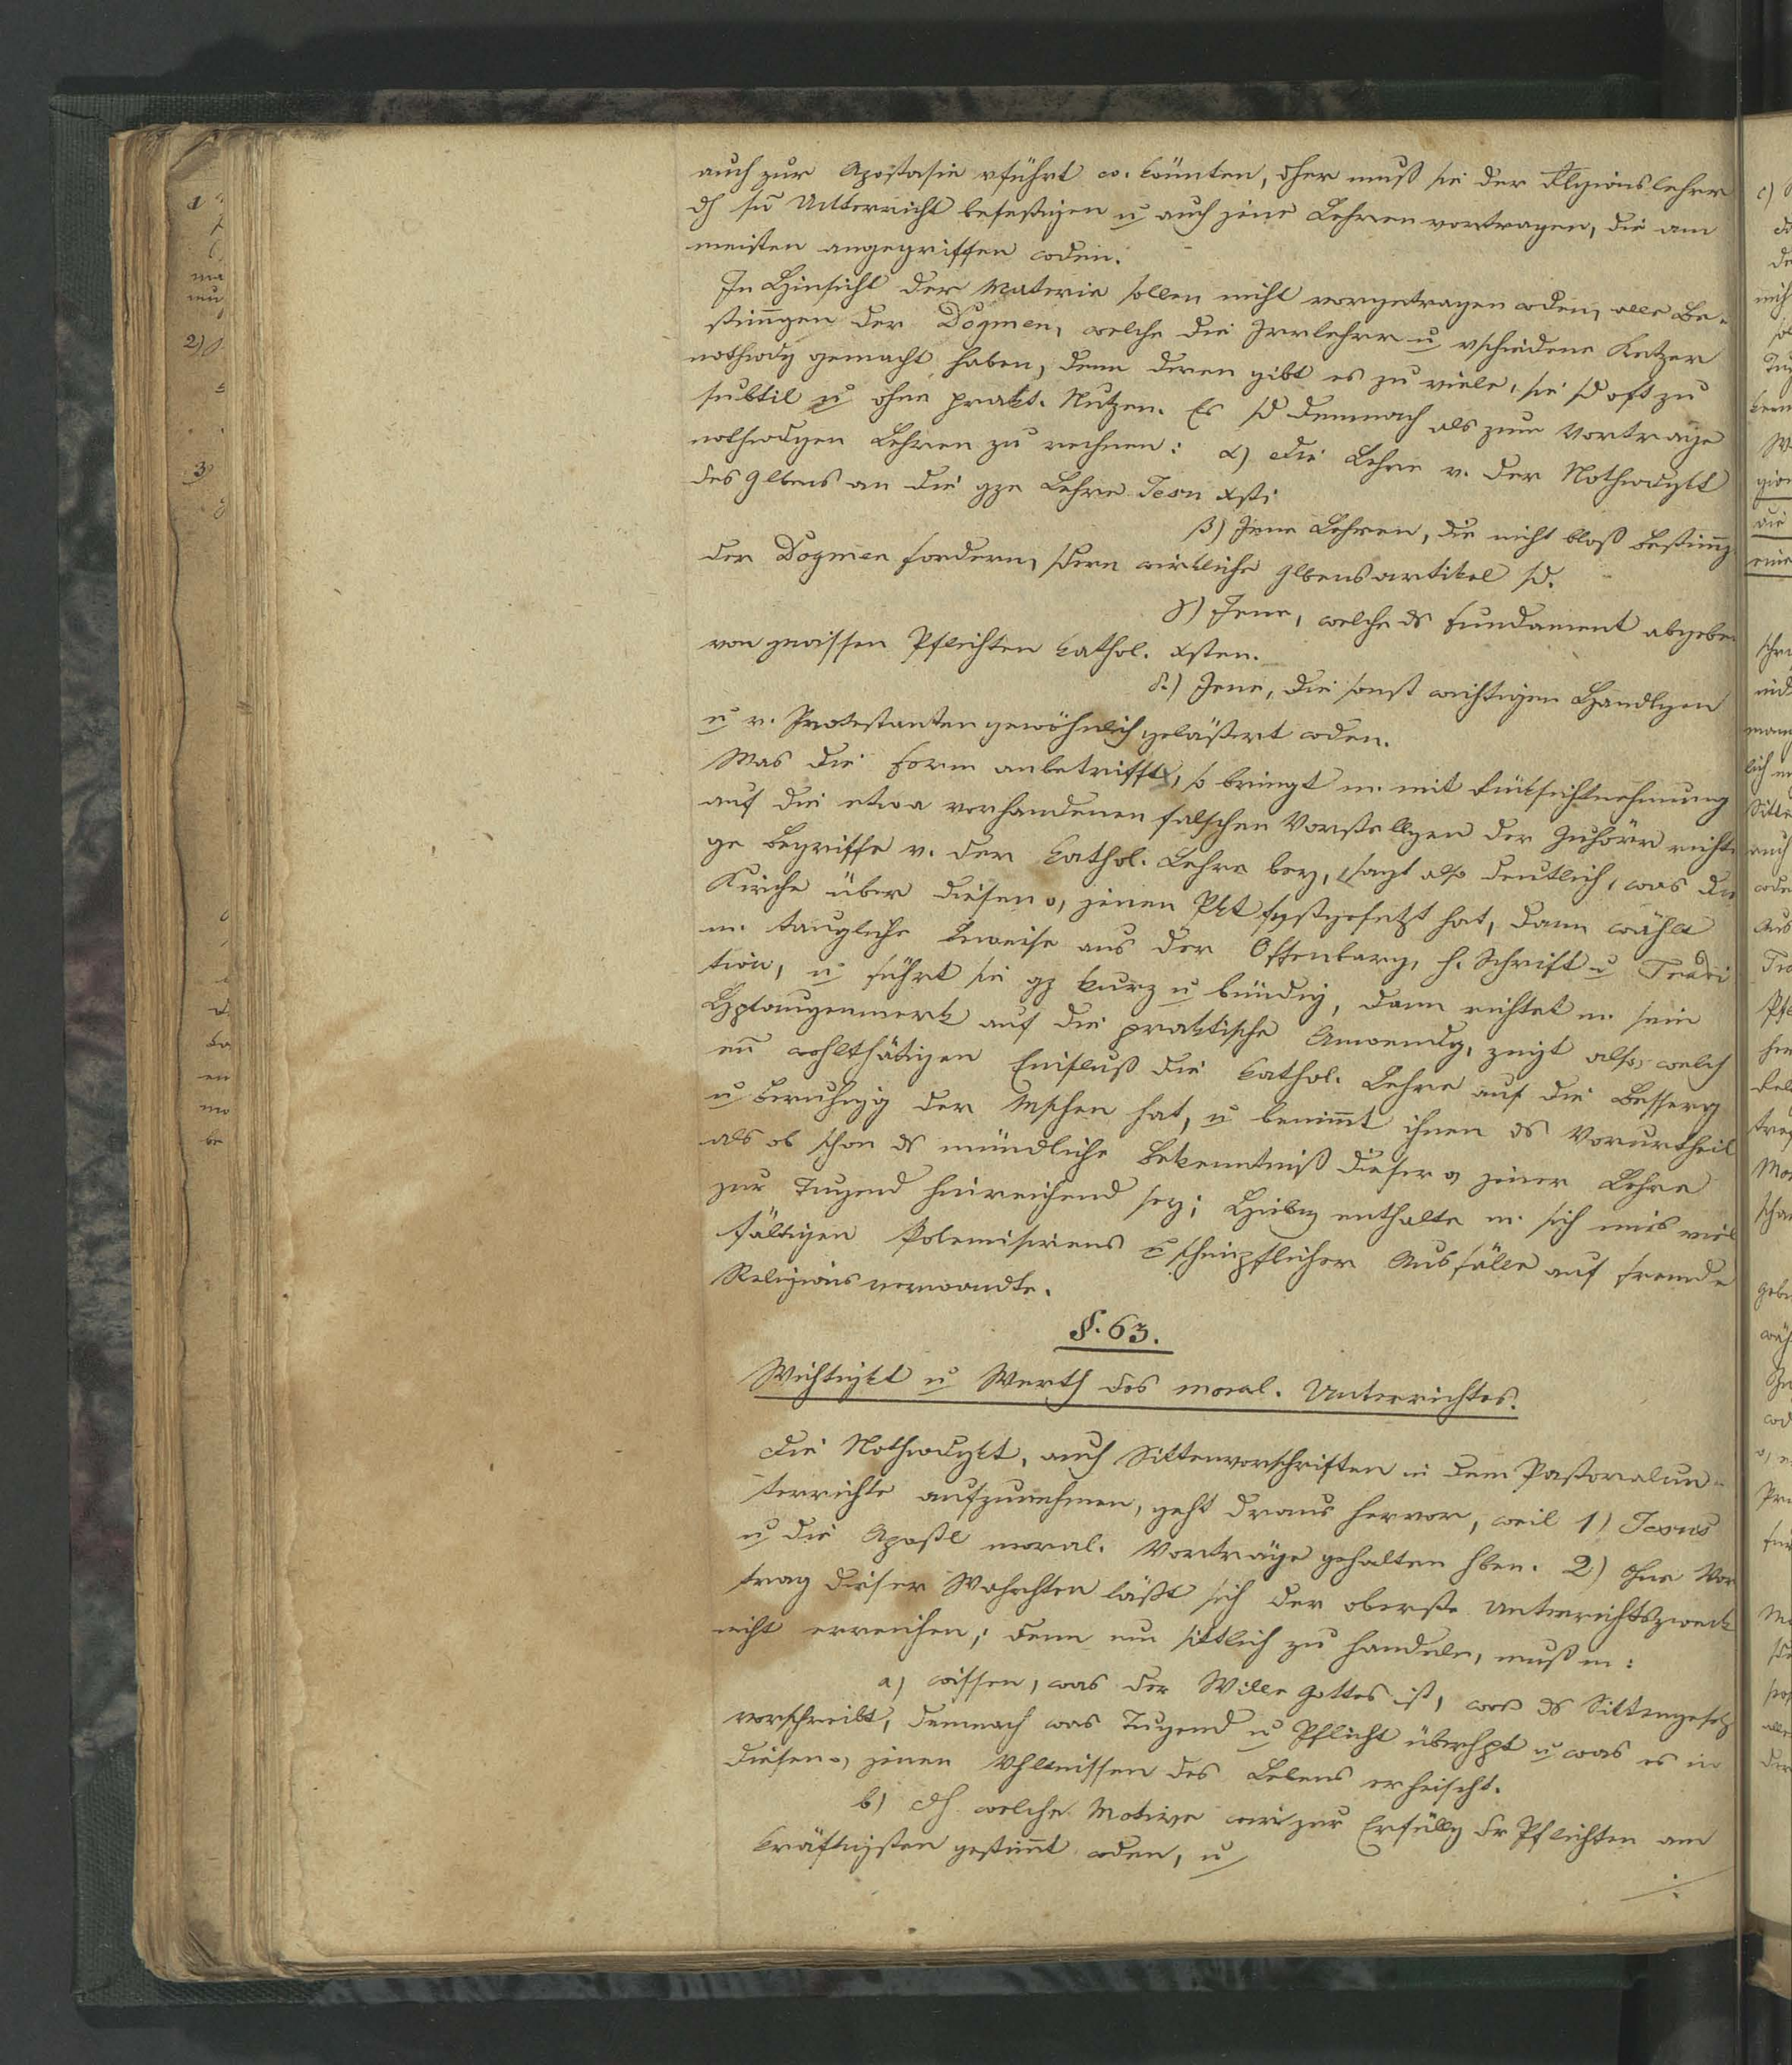 auch zur Apostasie vführt w. könnten, dher muß sie der Rlgionslehrer
dh sn Unterricht befestigen u auch jene Lehren vortragen, die am
meisten angegriffen wden.
In Hinsicht der Materie sollen nicht vorgetragen wden, alle Be-
stimgen der Dogmen, welche die Irrlehrer u vschiedene Ketzer
nothwdg gemacht haben, denn deren gibt es zu viele, sie sd oft zu
subtil u ohne prakt. Nutzen. Es sd demnach als zum Vortrage
nothwdgen Lehren zu rechnen: α) die Lehre v. der Nothwdgkt
des Glbens an die gze Lehre Jesu Xsti
β) Jene Lehren, die nicht bloß Bestimg
der Dogmen fordern, sdern wirkliche Glbensartikel sd.
γ) Jene, welche ds Fundament abgeben
von gewissen Pflichten kathol. Xsten.
δ.) Jene, die sonst wichtigen Handlgen
u v. Protestanten gewöhnlich gelästert wden.
Was die Form anbetrifft, so bringt m. mit Rüksichtnehmung
auf die etwa vorhandenen falschen Vorstellgen der Zuhörer richti
ge Begriffe v. der kathol. Lehre bey, sagt also deutlich, was die
Kirche über diesen o, jenen Pkt festgesetzt hat, dann wählt
m. taugliche Beweise aus der Offenbarg, h. Schrift u Tradi
tion, u führt sie gz kurz u bündig, dann richtet m. sein
Hptaugenmerk auf die praktische Anwendg, zeigt also, welch
en wohlthätigen Einfluß die kathol. Lehre auf die Besserg
u Beruhigg der Mschen hat, u benimt ihnen ds Vorurtheil
als ob schon ds mündliche Bekenntniß dieser o jener Lehre
zur Tugend hinreichend sey; Hiebey enthalte m. sich eines viel
fältigen Polemisirens u schimpflicher Ausfälle auf fremde
Religionsverwandte.
§. 63.
Wichtigkt u Werth des moral. Unterrichtes.
Die Nothwdgkt, auch Sittenvorschriften in dem Pastoralun-
terrichte aufzunehmen, geht draus hervor, weil 1) Jesus
u die Apostl moral. Vorträge gehalten hben. 2) Ohne Vor
trag dieser Wahrhten läßt sich der oberste Unterrichtszweck
nicht erreichen; denn um sittlich zu handeln, muß m:
a) wissen, was der Wille Gottes ist, was ds Sittengesetz
vorschreibt, demnach was Tugend u Pflicht überhpt u was es in
diesen o, jenen Vhltnissen des Lebens erheischt.
b) dh welche Motive wir zur Erfüllg dr Pflichten am
kräftigsten gestimt wden, u